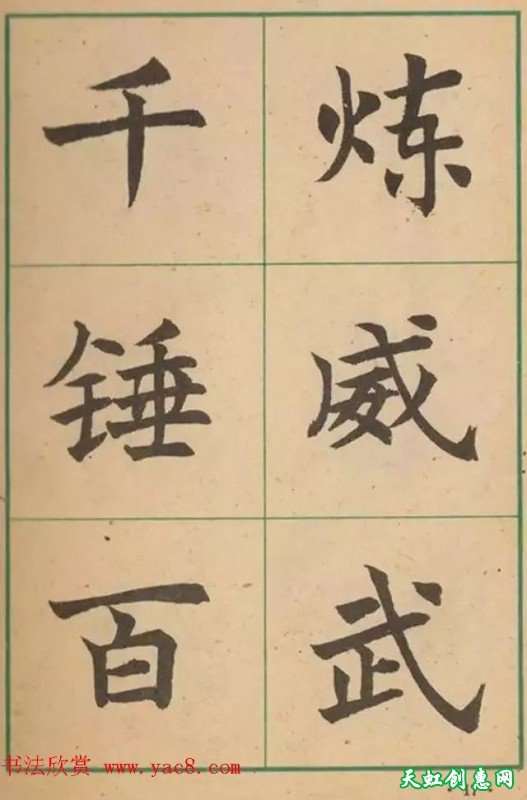 千锤百
炼威武
书法欣赏 www.yac8.com
天虹创惠网